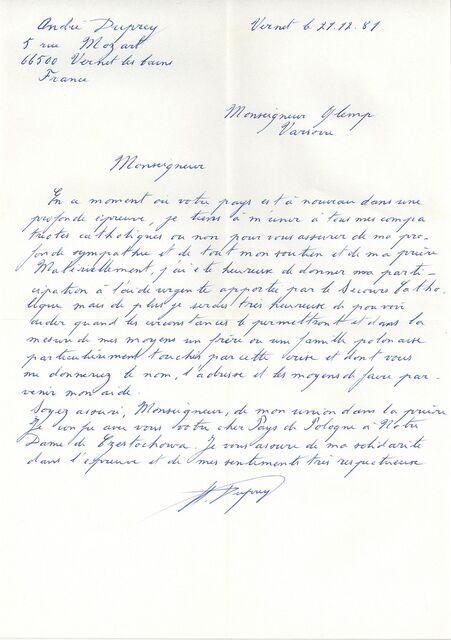 André Duprey
5 rue Mozart
66500 Vernet les bains
France
Vernet le 21.12.81
Monseigneur Glemp
Varsovie
Monseigneur
En ce moment où votre pays est à nouveau dans une
profonde épreuve, je tiens à m'unir à tous mes compa
triotes catholiques ou non pour vous assurer de ma pro-
fonde sympathie et de tout mon soutien et de ma prière
Matériellement, j'ai été heureuse de donner ma parti-
cipation à l'aide urgente apportée par le Secours Catho-
lique mais de plus je serais très heureuse de pouvoir
aider quand les circonstances le permettront et dans la
mesure de mes moyens un frère ou une famille polonaise
particulièrement touchée par cette crise et dont vous
me donneriez le nom, l'adresse et les moyens de faire par-
venir mon aide.
Soyez assuré, Monseigneur, de mon union dans la prière
Je confie avec vous votre cher Pays de Pologne à Notre
Dame de Czestochowa. Je vous assure de ma solidarité
dans l'épreuve et de mes sentiments très respectueux
A. Duprey